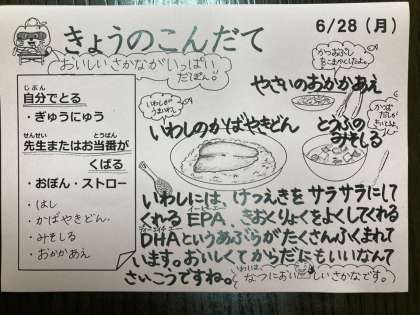 きょうのこんだて
6/28（月）
おいしいさかながいっぱい
だぽん。
かつおぶし
をこまかくしたよ。
やさいのおかかあえ
じぶん
自分でとる
・ぎゅうにゅう
せんせい とうばん
先生またはお当番が
くばる
・おぼん・ストロー
・はし
・かばやきどん・
・みそしる
・おかかあえ
いわしが
うまいわ。
いわしのかばやきどん
かつお
だしが
きいてるよ。
とうふの
みそしる
いわしには、けつえきをサラサラにして
くれるEPA、きおくりょくをよくしてくれる
DHAというあぶらがたくさんふくまれて
います。おいしくてからだにもいいなんて
さいこうですね。
いわしは、
なつにおいしいさかなです。